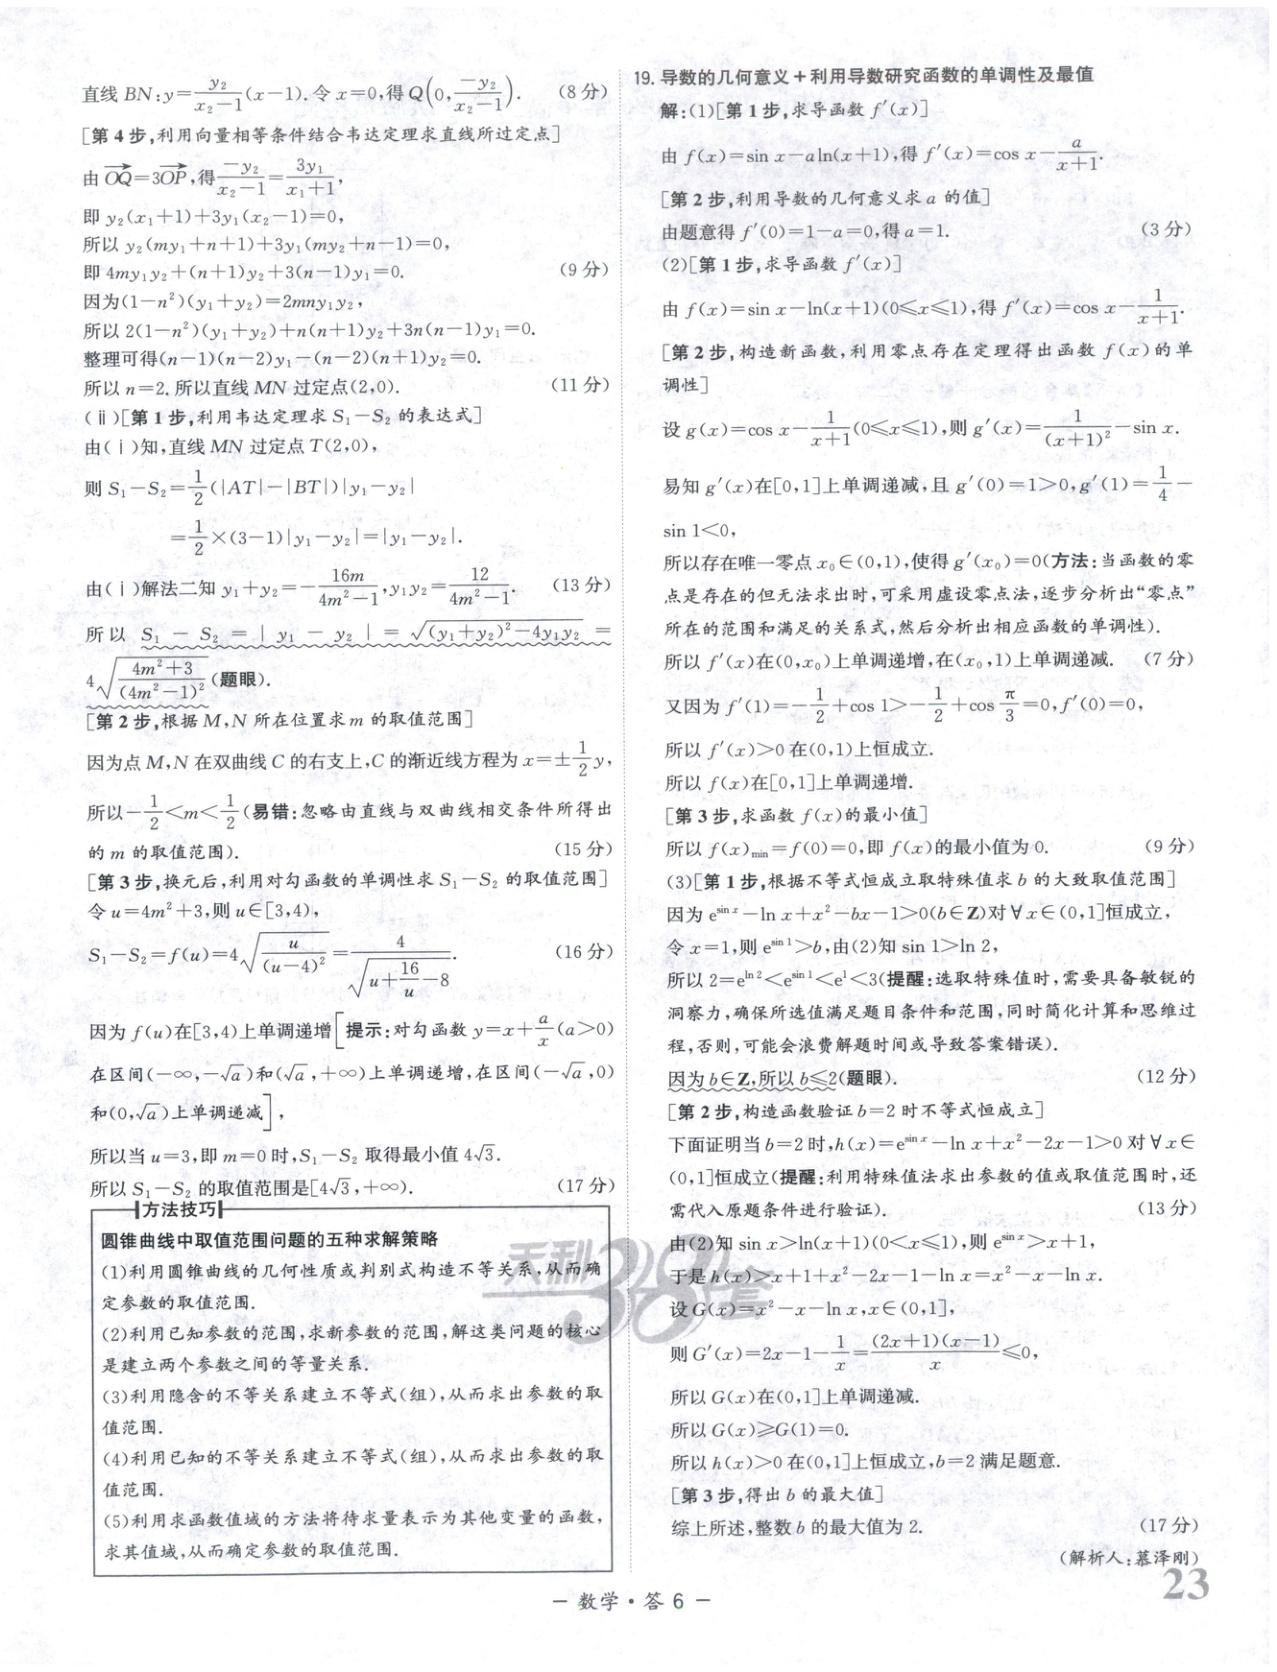 直线 BN:y=\frac{y₂}{x₂-1}(x-1).令 x=0,得 Q(0,\frac{-y₂}{x₂-1}). (8 分)
[第 4 步,利用向量相等条件结合韦达定理求直线所过定点]
由 \overrightarrow{OQ}=3\overrightarrow{OP},得\frac{-y₂}{x₂-1}=\frac{3y₁}{x₁+1},
即 y₂(x₁+1)+3y₁(x₂-1)=0,
所以 y₂(my₁+n+1)+3y₁(my₂+n-1)=0,
即 4my₁y₂+(n+1)y₂+3(n-1)y₁=0. (9 分)
因为(1-n²)(y₁+y₂)=2mny₁y₂,
所以 2(1-n²)(y₁+y₂)+n(n+1)y₂+3n(n-1)y₁=0.
整理可得(n-1)(n-2)y₁-(n-2)(n+1)y₂=0.
所以 n=2.所以直线 MN 过定点(2,0). (11 分)
(ⅱ)[第 1 步,利用韦达定理求 S₁-S₂ 的表达式]
由(ⅰ)知,直线 MN 过定点 T(2,0),
则 S₁-S₂=\frac{1}{2}(|AT|-|BT|)|y₁-y₂|
=\frac{1}{2}×(3-1)|y₁-y₂|=|y₁-y₂|.
由(ⅰ)解法二知 y₁+y₂=-\frac{16m}{4m²-1},y₁y₂=\frac{12}{4m²-1}. (13 分)
所以 S₁-S₂=|y₁-y₂|=\sqrt{(y₁+y₂)²-4y₁y₂}=
4\sqrt{\frac{4m²+3}{(4m²-1)²}}(题眼).
[第 2 步,根据 M,N 所在位置求 m 的取值范围]
因为点 M,N 在双曲线 C 的右支上,C 的渐近线方程为 x=±\frac{1}{2}y,
所以-\frac{1}{2}<m<\frac{1}{2}(易错:忽略由直线与双曲线相交条件所得出
的 m 的取值范围). (15 分)
[第 3 步,换元后,利用对勾函数的单调性求 S₁-S₂ 的取值范围]
令 u=4m²+3,则 u∈[3,4),
S₁-S₂=f(u)=4\sqrt{\frac{u}{(u-4)²}}=\frac{4}{\sqrt{u+\frac{16}{u}-8}}. (16 分)
因为 f(u)在[3,4)上单调递增[提示:对勾函数 y=x+\frac{a}{x}(a>0)
在区间(-∞,-√a)和(√a,+∞)上单调递增,在区间(-√a,0)
和(0,√a)上单调递减],
所以当 u=3,即 m=0 时,S₁-S₂ 取得最小值 4√3.
所以 S₁-S₂ 的取值范围是[4√3,+∞). (17 分)
方法技巧
圆锥曲线中取值范围问题的五种求解策略
(1)利用圆锥曲线的几何性质或判别式构造不等关系,从而确
定参数的取值范围.
(2)利用已知参数的范围,求新参数的范围,解这类问题的核心
是建立两个参数之间的等量关系.
(3)利用隐含的不等关系建立不等式(组),从而求出参数的取
值范围.
(4)利用已知的不等关系建立不等式(组),从而求出参数的取
值范围.
(5)利用求函数值域的方法将待求量表示为其他变量的函数,
求其值域,从而确定参数的取值范围.
19.导数的几何意义+利用导数研究函数的单调性及最值
解:(1)[第 1 步,求导函数 f′(x)]
由 f(x)=sin x-aln(x+1),得 f′(x)=cos x-\frac{a}{x+1}.
[第 2 步,利用导数的几何意义求 a 的值]
由题意得 f′(0)=1-a=0,得 a=1. (3 分)
(2)[第 1 步,求导函数 f′(x)]
由 f(x)=sin x-ln(x+1)(0≤x≤1),得 f′(x)=cos x-\frac{1}{x+1}.
[第 2 步,构造新函数,利用零点存在定理得出函数 f(x)的单
调性]
设 g(x)=cos x-\frac{1}{x+1}(0≤x≤1),则 g′(x)=\frac{1}{(x+1)²}-sin x.
易知 g′(x)在[0,1]上单调递减,且 g′(0)=1>0,g′(1)=\frac{1}{4}-
sin 1<0,
所以存在唯一零点 x₀∈(0,1),使得 g′(x₀)=0(方法:当函数的零
点是存在的但无法求出时,可采用虚设零点法,逐步分析出“零点”
所在的范围和满足的关系式,然后分析出相应函数的单调性).
所以 f′(x)在(0,x₀)上单调递增,在(x₀,1)上单调递减. (7 分)
又因为 f′(1)=-\frac{1}{2}+cos 1>-\frac{1}{2}+cos \frac{π}{3}=0,f′(0)=0,
所以 f′(x)>0 在(0,1)上恒成立.
所以 f(x)在[0,1]上单调递增.
[第 3 步,求函数 f(x)的最小值]
所以 f(x)_{min}=f(0)=0,即 f(x)的最小值为 0. (9 分)
(3)[第 1 步,根据不等式恒成立取特殊值求 b 的大致取值范围]
因为 e^{sin x}-ln x+x²-bx-1>0(b∈Z)对∀x∈(0,1]恒成立,
令 x=1,则 e^{sin 1}>b,由(2)知 sin 1>ln 2,
所以 2=e^{ln 2}<e^{sin 1}<e¹<3(提醒:选取特殊值时,需要具备敏锐的
洞察力,确保所选值满足题目条件和范围,同时简化计算和思维过
程,否则,可能会浪费解题时间或导致答案错误).
因为 b∈Z,所以 b≤2(题眼). (12 分)
[第 2 步,构造函数验证 b=2 时不等式恒成立]
下面证明当 b=2 时,h(x)=e^{sin x}-ln x+x²-2x-1>0 对∀x∈
(0,1]恒成立(提醒:利用特殊值法求出参数的值或取值范围时,还
需代入原题条件进行验证). (13 分)
由(2)知 sin x>ln(x+1)(0<x≤1),则 e^{sin x}>x+1,
于是 h(x)>x+1+x²-2x-1-ln x=x²-x-ln x.
设 G(x)=x²-x-ln x,x∈(0,1],
则 G′(x)=2x-1-\frac{1}{x}=\frac{(2x+1)(x-1)}{x}≤0,
所以 G(x)在(0,1]上单调递减.
所以 G(x)≥G(1)=0.
所以 h(x)>0 在(0,1]上恒成立,b=2 满足题意.
[第 3 步,得出 b 的最大值]
综上所述,整数 b 的最大值为 2. (17 分)
(解析人:慕泽刚)
天利38套
23
- 数学·答 6 -